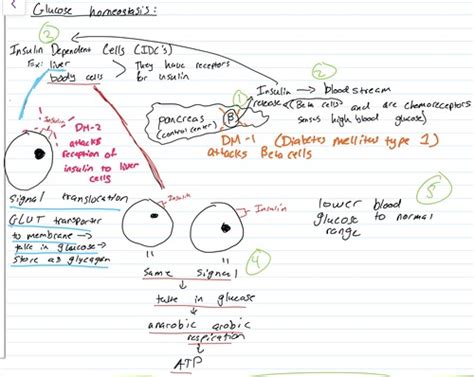 Glucose homeostasis:
3
Insulin Dependent Cells (IDC's)
Ex: liver
body cells
> They have receptors
for insulin
2
1
Insulin → blood stream
release (Beta cells and are chemoreceptors
sense high blood glucose)
pancreas
(control center)
B
DM-1 (Diabetes mellitus type 1)
attacks Beta cells
Insulin
DM-2
attacks
reception of
insulin to liver
cells
signal translocation
GLUT transporter
to membrane →
take in glucose →
store as glycogen
Insulin
Insulin
5
lower blood
glucose to normal
range
4
same signal
↓
take in glucose
↓
anarobic arobic
respiration
↓
ATP